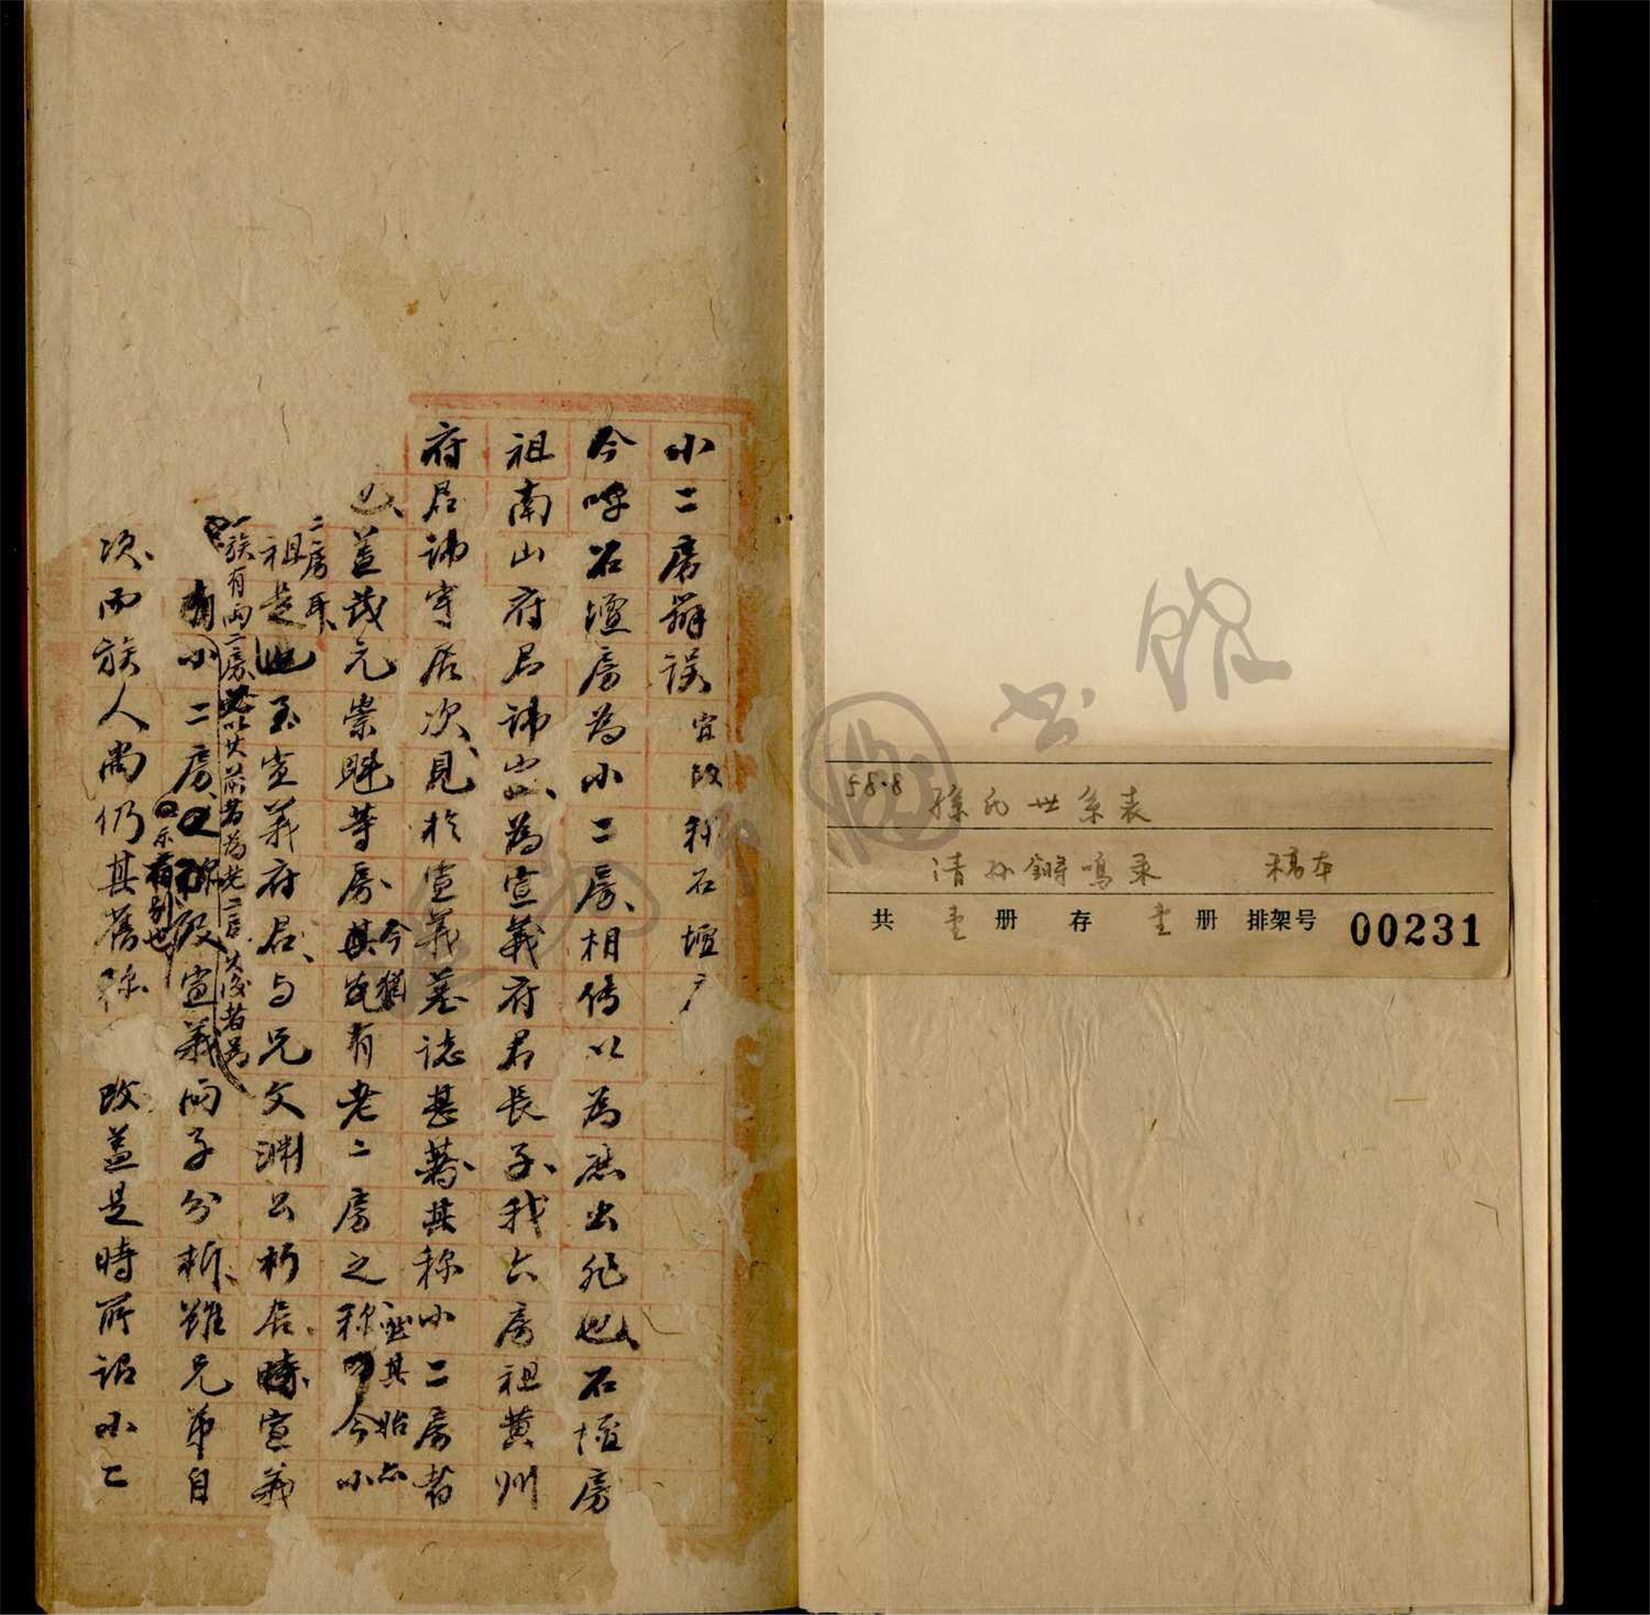 58.8
孫氏世系表
清孙鏘鳴录 稿本
共 壹 册 存 壹 册 排架号 00231
小二房辨误宜改称石壇房
今呼石壇房为小二房相传以為庶出非也石壇房
祖南山府君諱為宣義府君長子我六房祖黄州
府君諱守居次見於宣義墓誌甚著其称小二房者
蓋茂元崇等房今猶有老二房之称其始亦今小
二房耳
祖是也至宣義府君与兄文渊公析居時宣義
一族有兩二房以其前者為老二房其後者為
小二房以示有别也及宣義两子分析雖兄弟自
次而族人尚仍其舊称 改蓋是時所谓小二